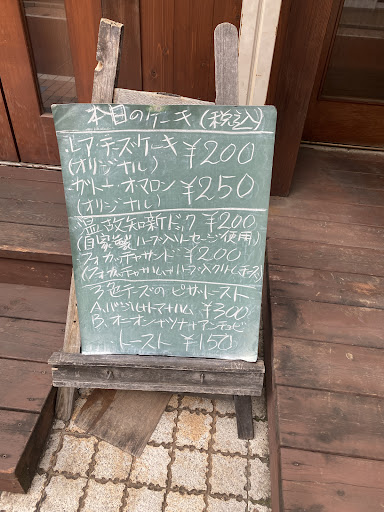 本日のケーキ (税込)
レアチーズケーキ ¥200
(オリジナル)
ガトー・オ・マロン ¥250
(オリジナル)
温故知新ドック ¥200
(自家製ハーブ入ソーセージ使用)
フォカッチャサンド ¥200
(フォカッチャ ハム ハーブ入クリームチーズ)
3色チーズのピザトースト
A. バジル トマト ハム ¥300
B. オニオン ツナ アンチョビ
トースト ¥150